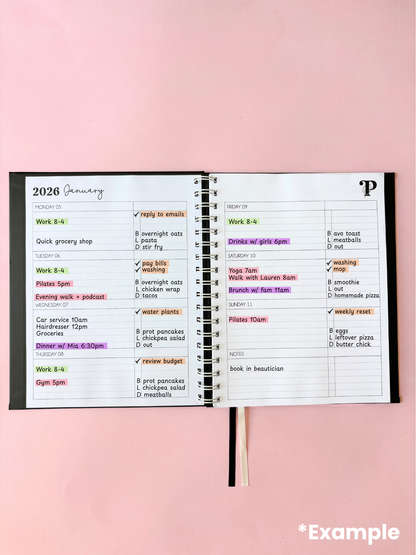 2026 January
MONDAY 05
Work 8-4
Quick grocery shop
✓ reply to emails
B overnight oats
L pasta
D stir fry
TUESDAY 06
Work 8-4
Pilates 5pm
Evening walk + podcast
✓ pay bills
✓ washing
B overnight oats
L chicken wrap
D tacos
WEDNESDAY 07
Car service 10am
Hairdresser 12pm
Groceries
Dinner w/ Mia 6:30pm
✓ water plants
B prot pancakes
L chickpea salad
D out
THURSDAY 08
Work 8-4
Gym 5pm
✓ review budget
B prot pancakes
L chickpea salad
D meatballs
P
FRIDAY 09
Work 8-4
Drinks w/ girls 6pm
B avo toast
L meatballs
D out
SATURDAY 10
Yoga 7am
Walk with Lauren 8am
Brunch w/ fam 11am
✓ washing
✓ mop
B smoothie
L out
D homemade pizza
SUNDAY 11
Pilates 10am
✓ weekly reset
B eggs
L leftover pizza
D butter chick
NOTES
book in beautician
*Example